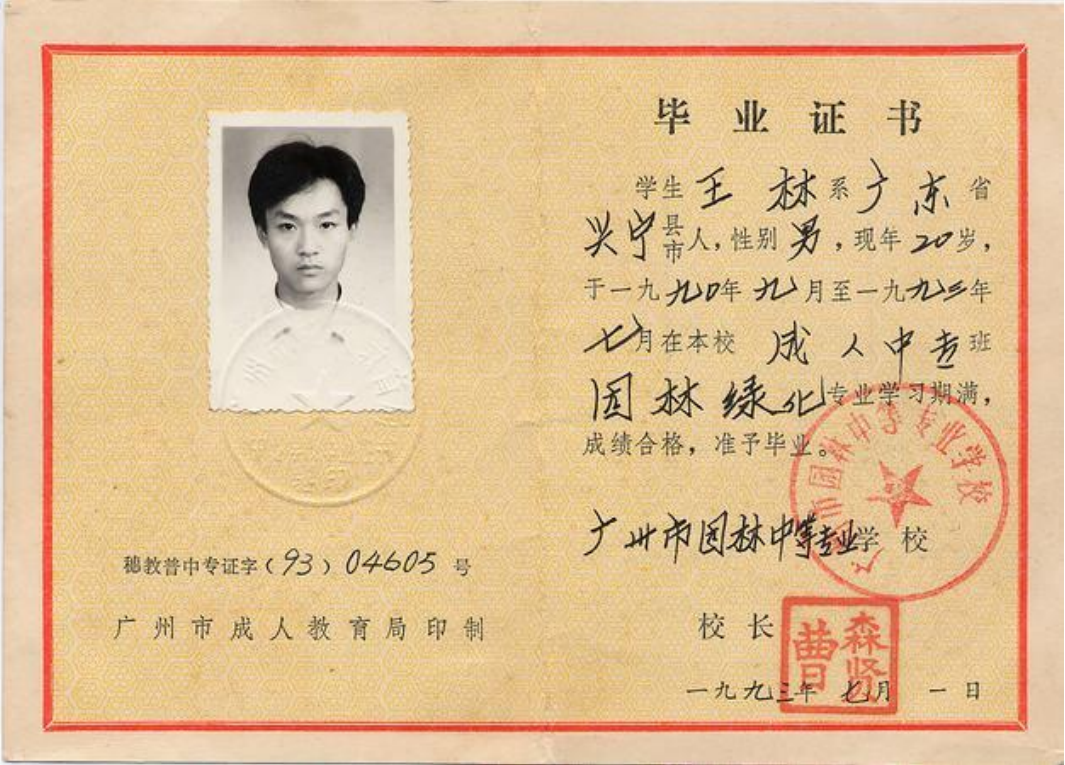 毕业证书
学生王林系广东省
兴宁县市人，性别男，现年20岁，
于一九九〇年九月至一九九三年
七月在本校成人中专班
园林绿化专业学习期满，
成绩合格，准予毕业。
广州市园林中等专业学校
广州市园林中等专业学校
校长
曹森贤
一九九三年七月一日
穗教普中专证字（93）04605号
广州市成人教育局印制